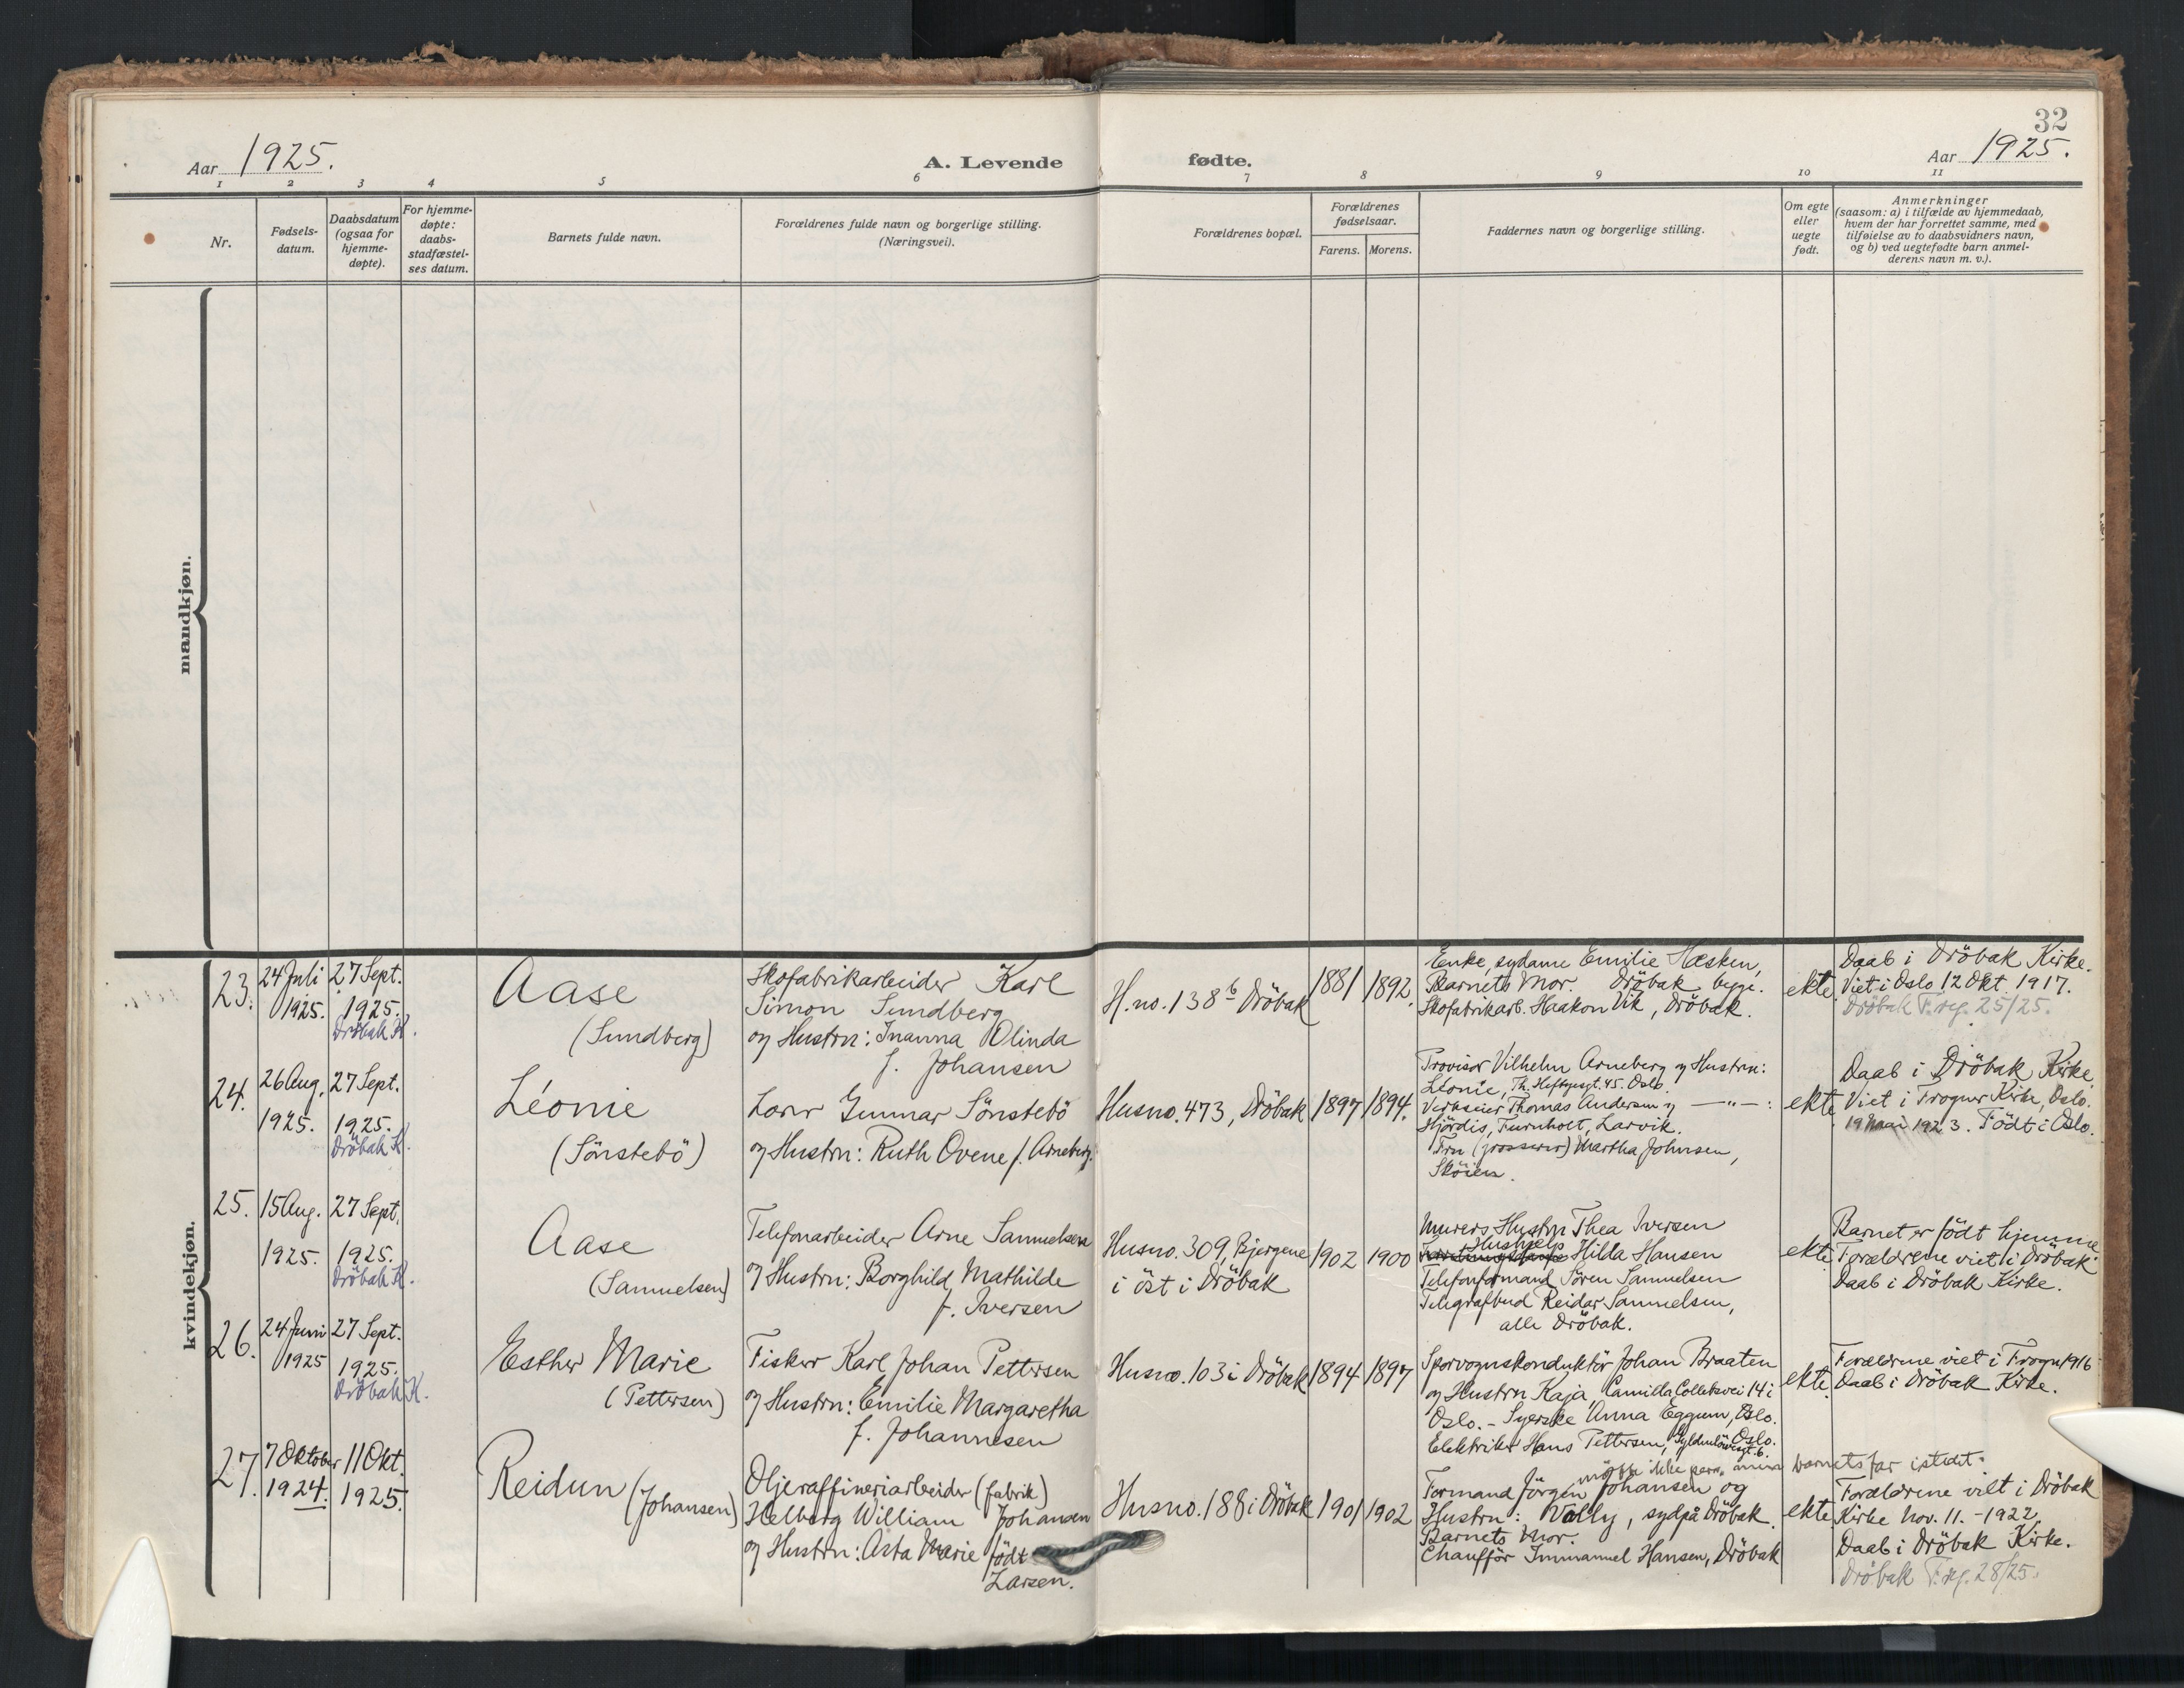 32
Aar 1925.
A. Levende
fødte.
Aar 1925.
1 2 3 4 5 6 7 8 9 10 11
Nr.
Fødsels-
datum.
Daabsdatum
(ogsaa for
hjemme-
døpte).
For hjemme-
døpte:
daabs-
stadfæstel-
ses datum.
Barnets fulde navn.
Forældrenes fulde navn og borgerlige stilling.
(Næringsvei).
Forældrenes bopæl.
Forældrenes
fødselsaar.
Farens. Morens.
Faddernes navn og borgerlige stilling.
Om egte
eller
uegte
født.
Anmerkninger
(saasom: a) i tilfælde av hjemmedaab,
hvem der har forrettet samme, med
tilføielse av to daabsvidners navn,
og b) ved uegtefødte barn anmel-
derens navn m. v.).
mandkjøn.
kvindekjøn.
23.
24 Juli
1925.
27 Sept.
1925.
Dröbak K.
Aase
(Sundberg)
Skofabrikarbeider Karl
Simon Sundberg
og Hustru: Inanna Olinda
f. Johansen
H.no. 138 b Dröbak
1881
1892.
Enke, sydame Emilie Hæsken,
Barnets Mor. Dröbak begge.
Skofabrikarb. Haakon Vik, Dröbak.
ekte.
Daab i Dröbak Kirke.
Viet i Oslo 12 Okt. 1917.
Dröbak F.reg. 25/25.
24.
26 Aug.
1925.
27 Sept.
1925.
Dröbak K.
Léonie
(Sönstebö)
Lærer Gunnar Sönstebö
og Hustru: Ruth Ovene f. Arneberg.
Husno. 473, Dröbak
1897
1894.
Provisor Vilhelm Arneberg og Hustru:
Léonie, Th. Heftyesgt. 45. Oslo.
Verkseier Thomas Andersen og —"— :
Hjördis, Furuholt, Larvik.
Fru (grosserer) Martha Johnsen,
Sköien.
ekte
Daab i Dröbak Kirke.
Viet i Frogner Kirke, Oslo.
19 Mai 1923. Födt i Oslo.
25.
15 Aug.
1925.
27 Sept.
1925.
Dröbak K.
Aase
(Samuelsen)
Telefonarbeider Arne Samuelsen
og Hustru: Borghild Mathilde
f. Iversen
Husno. 309, Bjergene
i öst i Dröbak
1902
1900
Murers Hustru Thea Iversen
Hushjelp
Hilda Hansen
Telefonformand Sören Samuelsen
Telegrafbud Reidar Samuelsen,
alle Dröbak.
ekte
Barnet er födt hjemme
Forældrene viet i Dröbak
Daab i Dröbak Kirke.
26.
24 Juni
1925
27 Sept.
1925.
Dröbak K.
Esther Marie
(Pettersen)
Fisker Karl Johan Pettersen
og Hustru: Emilie Margaretha
f. Johannesen
Husno. 103 i Dröbak
1894
1897
Sporvognskonduktör Johan Braaten
og Hustru Kaja, Camilla Colletsvei 14 i
Oslo. - Syerske Anna Eggum, Oslo.
Elektriker Hans Pettersen, Gyldenlövesgt. 6. Oslo.
ekte.
Forældrene viet i Frogn 1916
Daab i Dröbak Kirke.
27.
7 Oktober
1924.
11 Okt.
1925.
Reidun
(Johansen)
Oljeraffineriarbeider (fabrik)
Helberg William Johansen
og Hustru: Asta Marie födt
Larsen.
Husno. 188 i Dröbak
1901
1902
mötte ikke barnetsfar istedet.
Formand Jörgen Johansen og
Hustru: Vally, sydpå Dröbak.
Barnets Mor.
Chaufför Immanuel Hansen, Dröbak
ekte
Forældrene viet i Dröbak
Kirke Nov. 11. - 1922.
Daab i Dröbak Kirke.
Dröbak F.reg. 28/25.